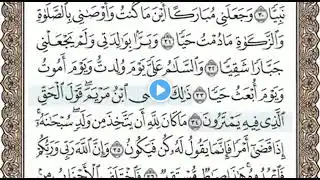 نَبِيًّا ٣٠ وَجَعَلَنِي مُبَارَكًا أَيْنَ مَا كُنتُ وَأَوْصَانِي بِالصَّلَوٰةِ
وَالزَّكَوٰةِ مَا دُمْتُ حَيًّا ٣١ وَبَرًّا بِوَالِدَتِي وَلَمْ يَجْعَلْنِي
جَبَّارًا شَقِيًّا ٣٢ وَالسَّلَامُ عَلَيَّ يَوْمَ وُلِدتُّ وَيَوْمَ أَمُوتُ
وَيَوْمَ أُبْعَثُ حَيًّا ٣٣ ذَٰلِكَ ابْنُ مَرْيَمَ قَوْلَ الْحَقِّ
الَّذِي فِيهِ يَمْتَرُونَ ٣٤ مَا كَانَ لِلَّهِ أَن يَتَّخِذَ مِن وَلَدٍ سُبْحَانَهُ
إِذَا قَضَىٰ أَمْرًا فَإِنَّمَا يَقُولُ لَهُ كُن فَيَكُونُ ٣٥ وَإِنَّ اللَّهَ رَبِّي وَرَبُّكُمْ